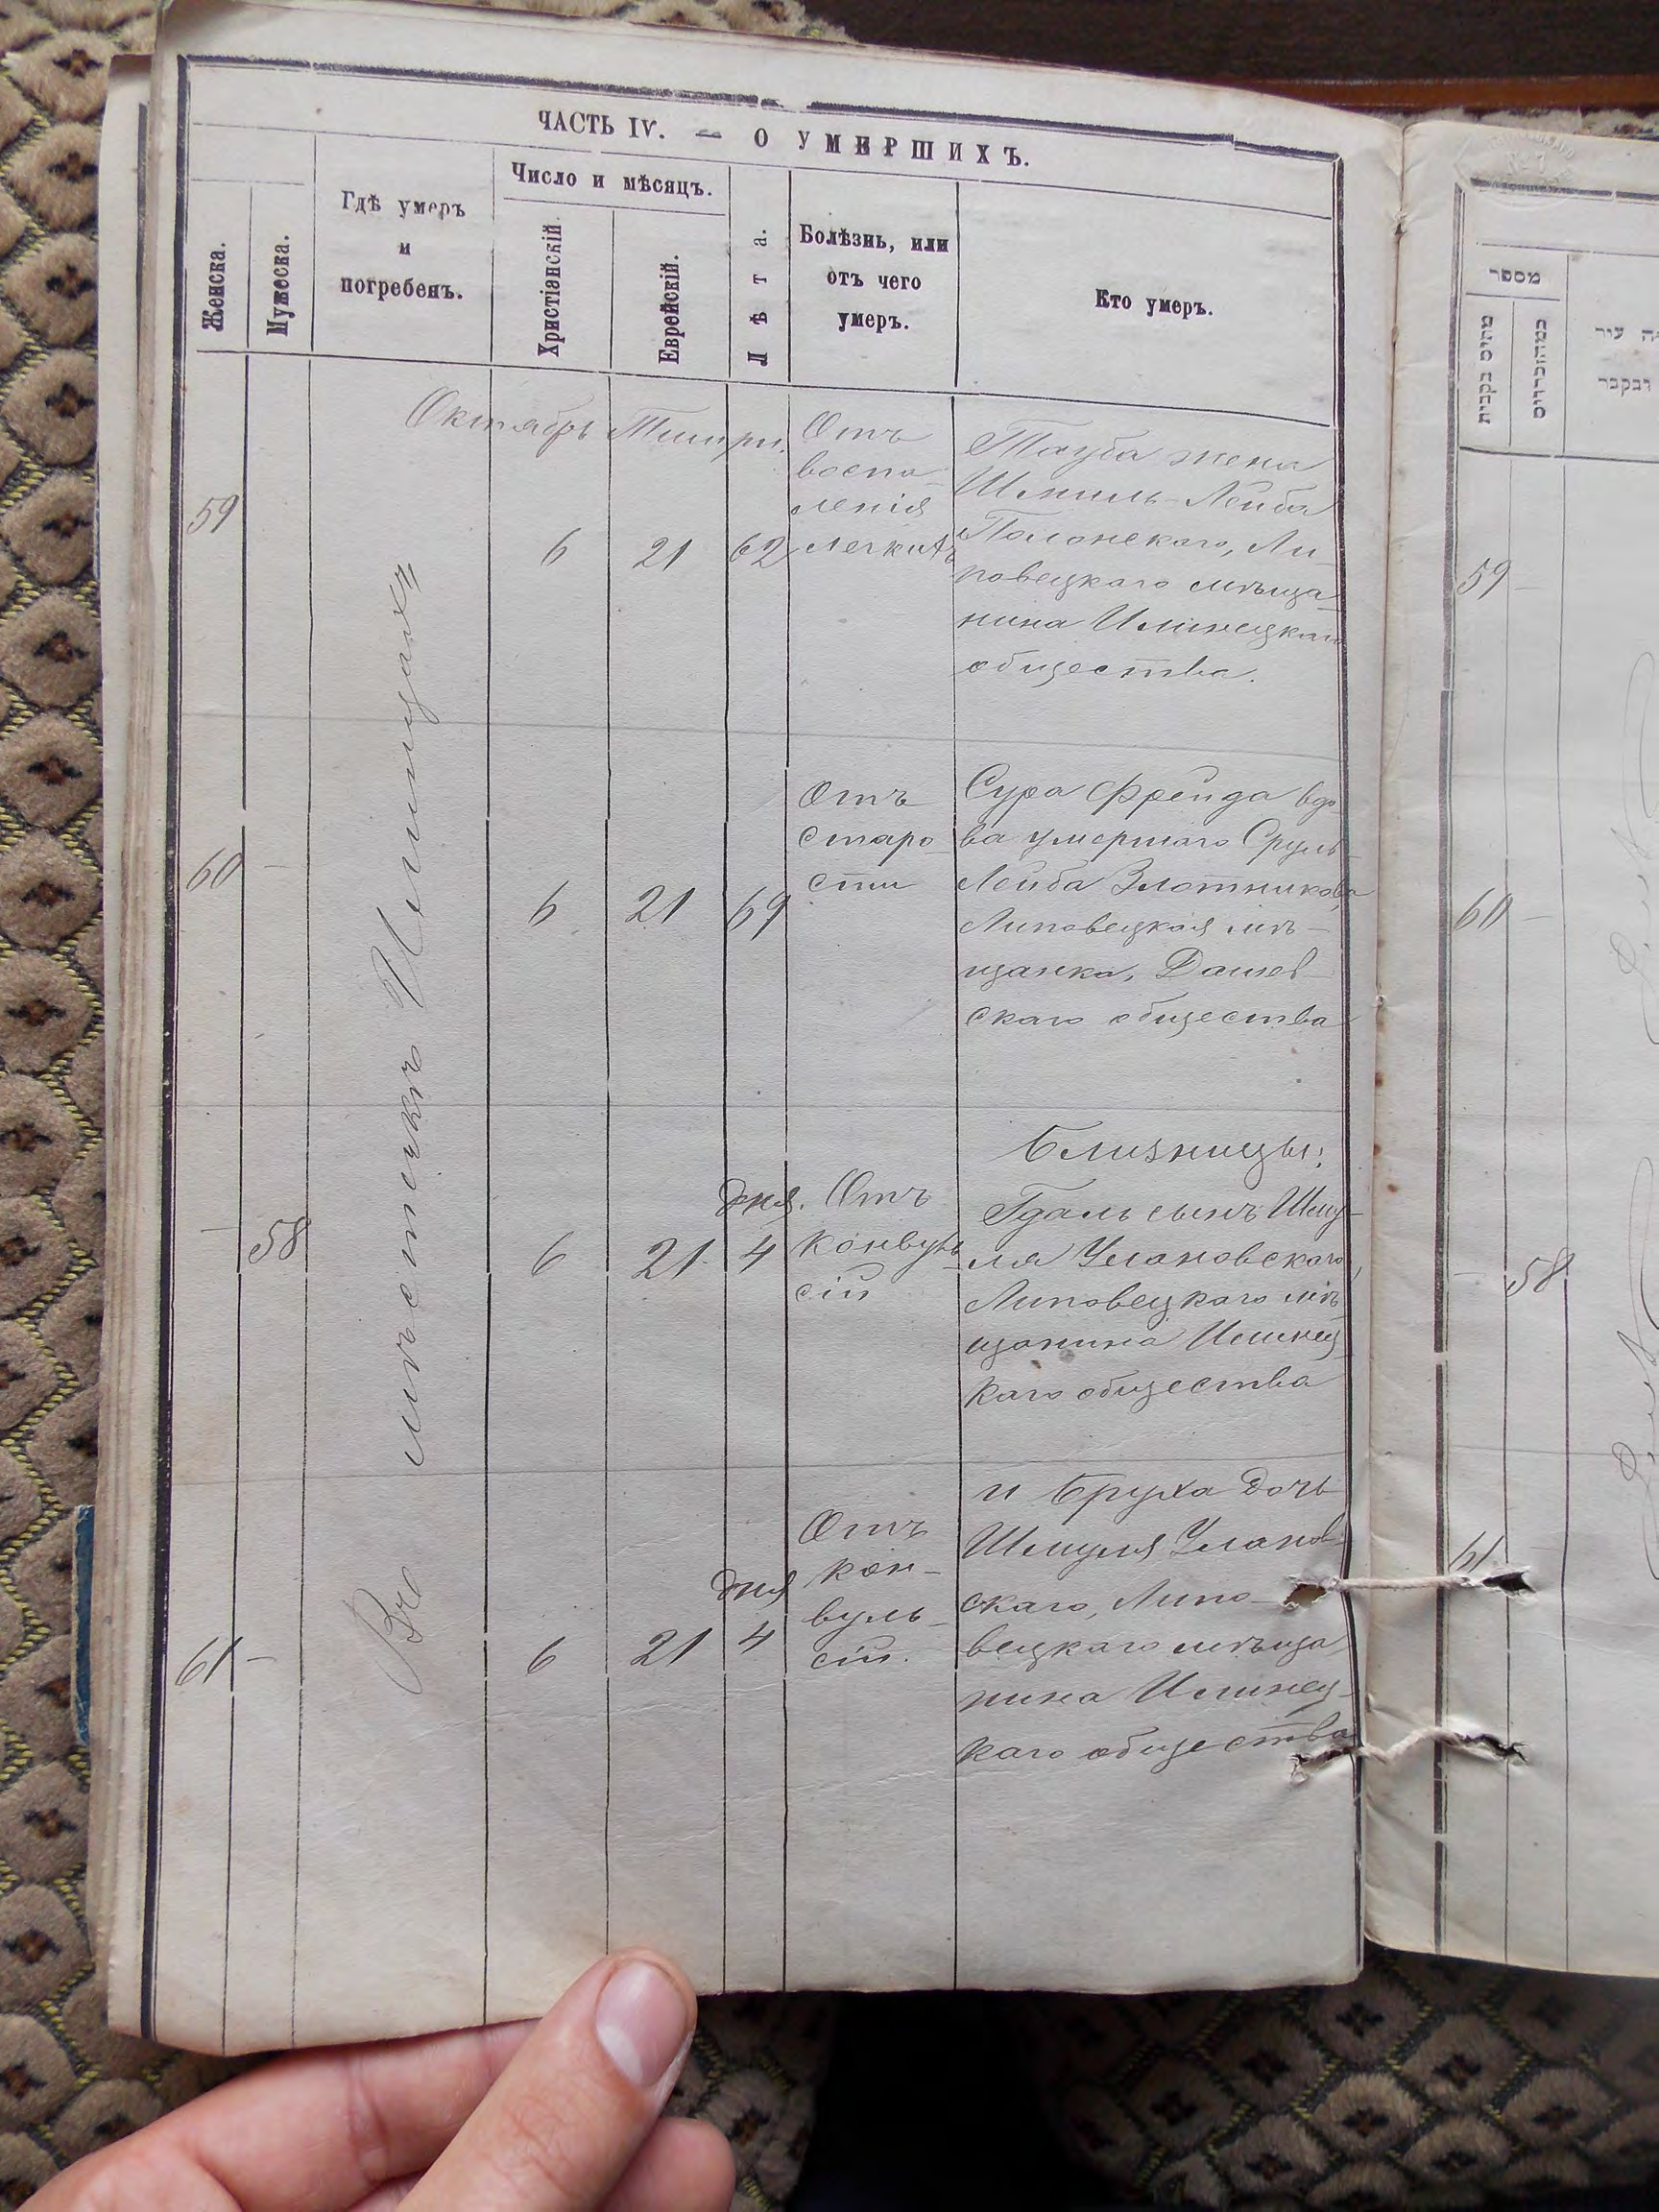 ЧАСТЬ IV. — О УМЕРШИХЪ.
Женска.
Мужеска.
Гдѣ умеръ
и
погребенъ.
Число и мѣсяцъ.
Христіанскій.
Еврейскій.
Лѣта.
Болѣзнь, или
отъ чего
умеръ.
Кто умеръ.
Октябрь Тишри.
Въ мѣстечкѣ Иллинцахъ
59
6
21
62
Отъ
воспа-
ленія
легкихъ
Тауба жена
Шмиль-Лейба
Полонскаго, Ли-
повецкаго мѣща-
нина Илинецкаго
общества.
60 -
6
21
69
Отъ
старо-
сти
Сура Фрейда вдо-
ва умершаго Сруль-
Лейба Злотникова
Липовецкая мѣ-
щанка, Дашев-
скаго общества
Близницы:
- 58
6
21
дня.
4
Отъ
конвуль-
сій
Гдаль сынъ Шму-
ля Улановскаго,
Липовецкаго мѣ-
щанина Илинец-
каго общества
61 -
6
21
дня
4
Отъ
кон-
вуль-
сій.
и Бруха дочь
Шмуля Уланов-
скаго, Липо-
вецкаго мѣща-
нина Илинец-
каго общества
מספר
59 -
60 -
- 58
61